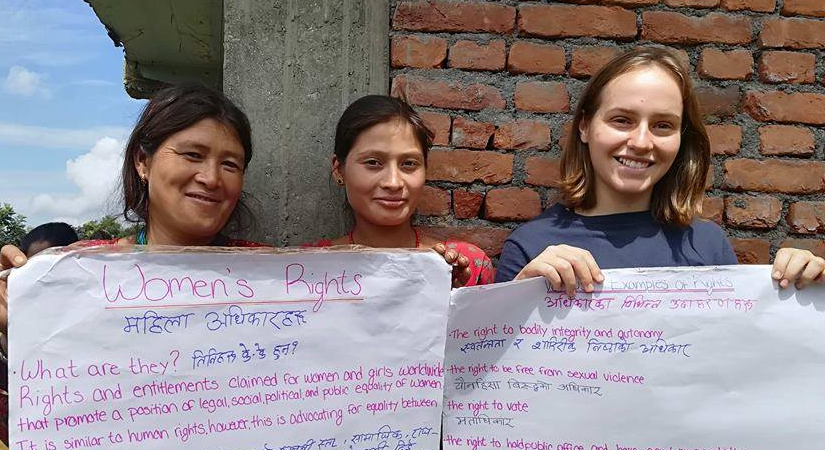 Women's Rights
महिला अधिकारहरू
What are they? तिनिहरू के-के हुन्?
Rights and entitlements claimed for women and girls worldwide
that promote a position of legal, social, political, and public equality of women
It is similar to human rights, however, this is advocating for equality between
सामाजिक,
Examples of Rights
अधिकारका विभिन्न उदाहरणहरू
- The right to bodily integrity and autonomy
स्वतन्त्रता र शारिरीक अधिकार
- the right to be free from sexual violence
यौनहिंसा विरूद्धका अधिकार
- the right to vote
मताधिकार
- the right to hold public office and